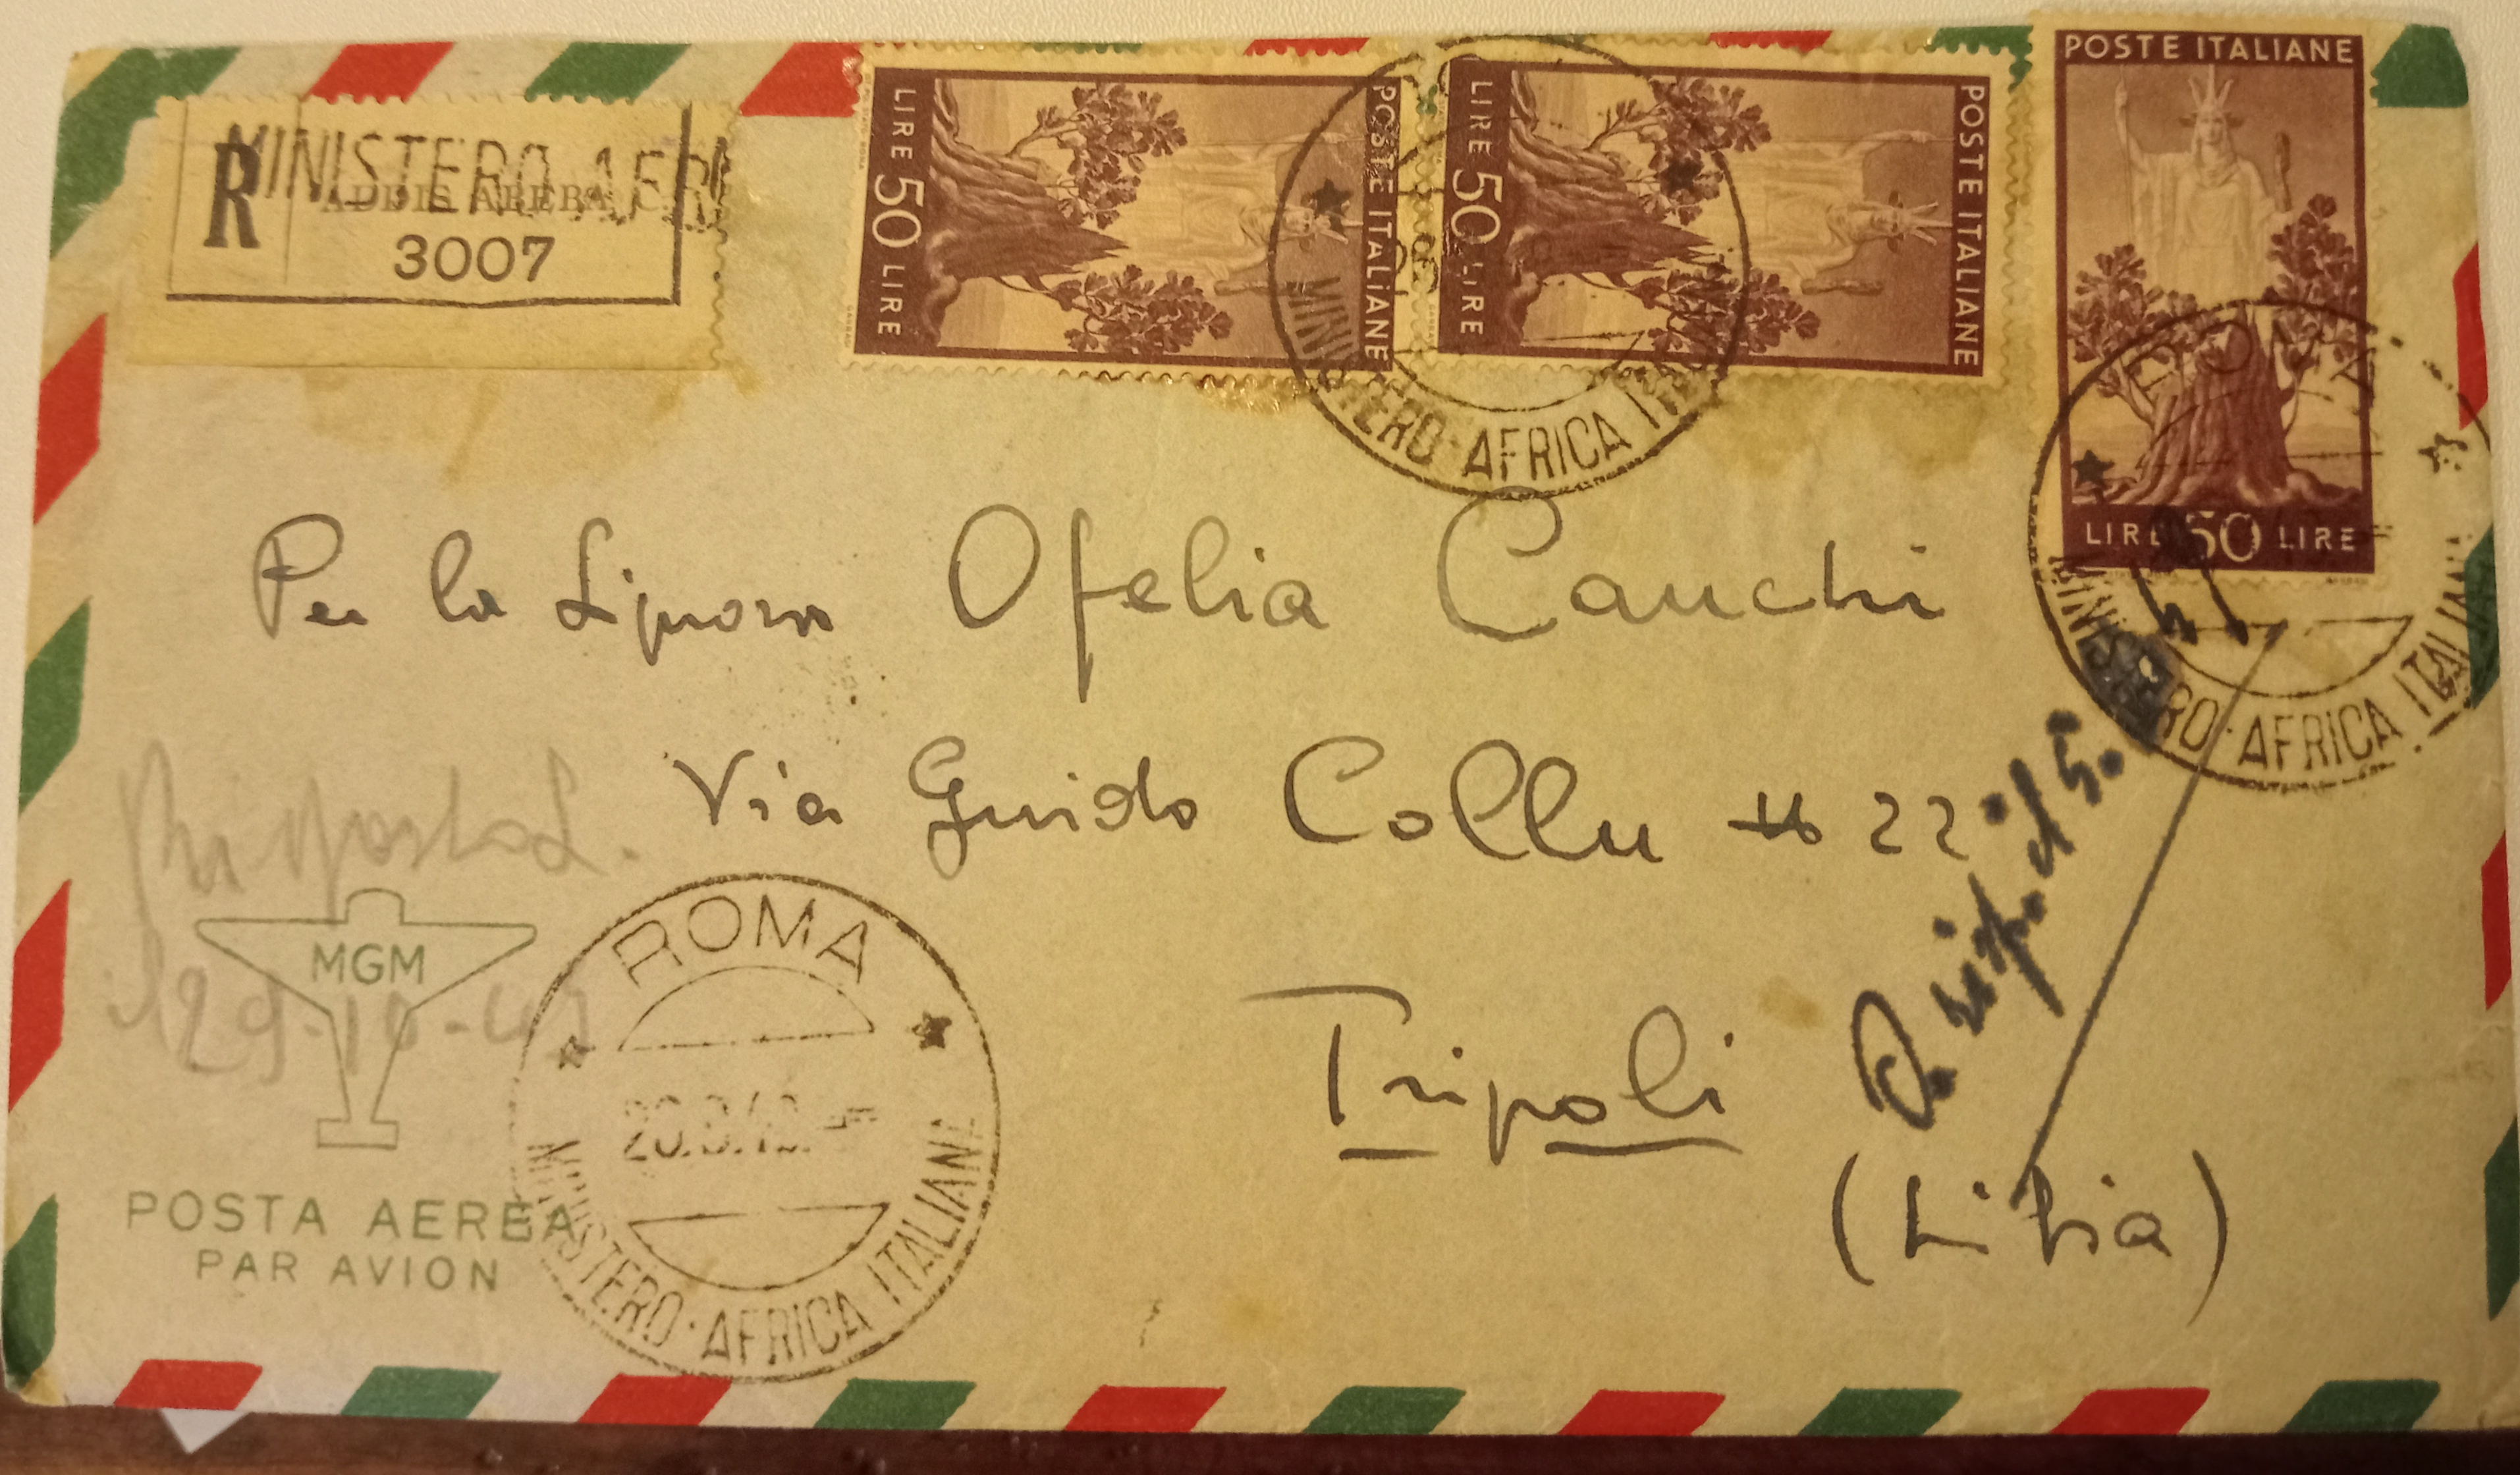 POSTE ITALIANE
LIRE 50 LIRE
POSTE ITALIANE
LIRE 50 LIRE
POSTE ITALIANE
LIRE 50 LIRE
R
MINISTERO AFR
ADDIS ABEBA C.
3007
MINISTERO · AFRICA ITALIANA
ROMA
MINISTERO · AFRICA ITALIANA
Per la Signora Ofelia Cauchi
Via Guido Collu 22
Tripoli
(Libia)
Risposta
29-10-47
MGM
POSTA AEREA
PAR AVION
ROMA
MINISTERO · AFRICA ITALIANA